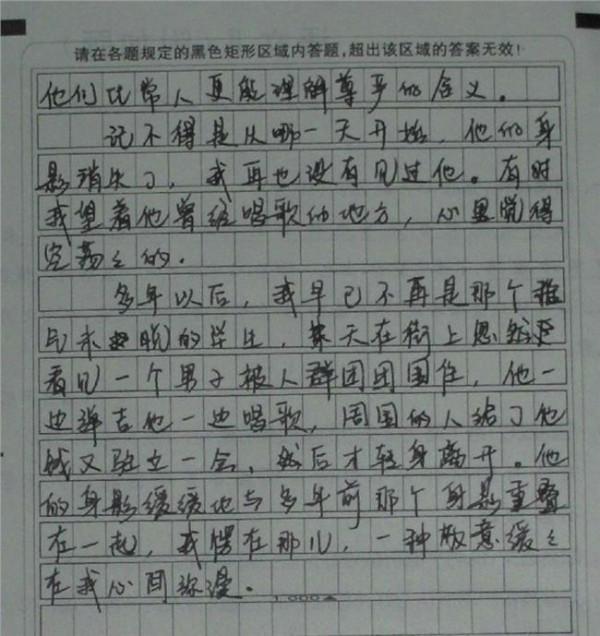 请在各题规定的黑色矩形区域内答题，超出该区域的答案无效！
他们比常人更能理解尊严的含义。
记不得是从哪一天开始，他的身
影消失了，我再也没有见过他。有时
我望着他曾经唱歌的地方，心里觉得
空荡々的。
多年以后，我早已不再是那个稚
气未脱的学生，某天在街上忽然
看见一个男子被人群团团围住，他一
边弹吉他一边唱歌，周围的人给了他
钱又驻立一会，然后才轻身离开。他
的身影缓缓地与多年前那个身影重叠
在一起，我愣在那儿，一种敬意缓々
在我心间弥漫。
1000▲